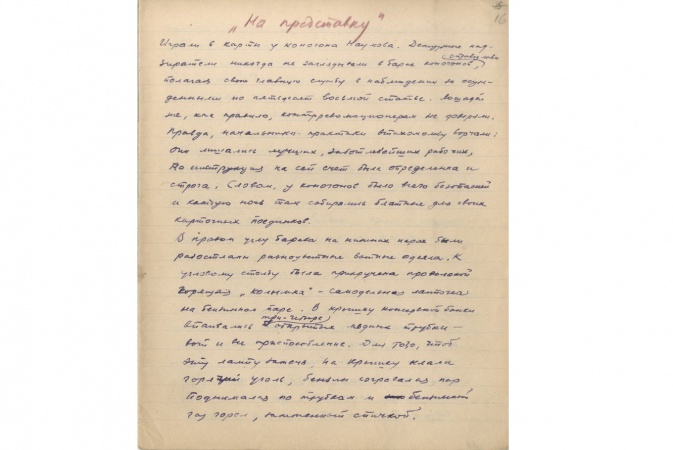 „На представку"
16
Играли в карты у коногона Наумова. Дежурные над-
зиратели никогда не заглядывали в барак коногонов, справедливо
полагая свою главную службу в наблюдении за осуж-
денными по пятьдесят восьмой статье. Лошадей
же, как правило, контрреволюционерам не доверяли.
Правда, начальники-практики втихомолку ворчали:
они лишались лучших, заботливейших рабочих,
но инструкция на сей счет была определенна и
строга. Словом, у коногонов было всего безопасней
и каждую ночь там собирались блатные для своих
карточных поединков.
В правом углу барака на нижних нарах были
разостланы разноцветные ватные одеяла. К
угловому столбу была прикручена проволокой
горящая „колымка" – самодельная лампочка
на бензинном паре. В крышку консервной банки
впаивались три-четыре открытых медных трубки –
вот и все приспособление. Для того, чтоб
эту лампу зажечь, на крышку клали
горячий уголь, бензин согревался, пар
поднимался по трубкам и бензиновый
газ горел, зажженный спичкой.